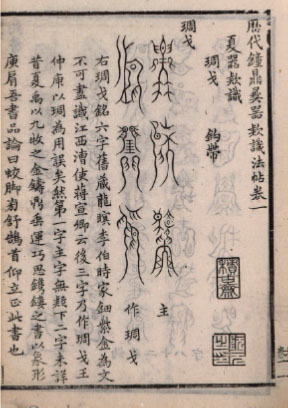 歷代鐘鼎彝器款識法帖卷一
夏器款識
琱戈　鉤帶
琱戈
主
作琱戈
右琱戈銘六字舊藏龍眠李伯時家鈿紫金為文
不可盡識江西漕使蔣宣卿云後三字乃作琱戈王
仲庚以琱為用誤矣然第一字主字無疑下二字未詳
昔夏禹以九牧之金鑄鼎垂運巧思鏤之書以象形
庾肩吾書品論曰蚊脚㫄舒鵠首仰立正此書也